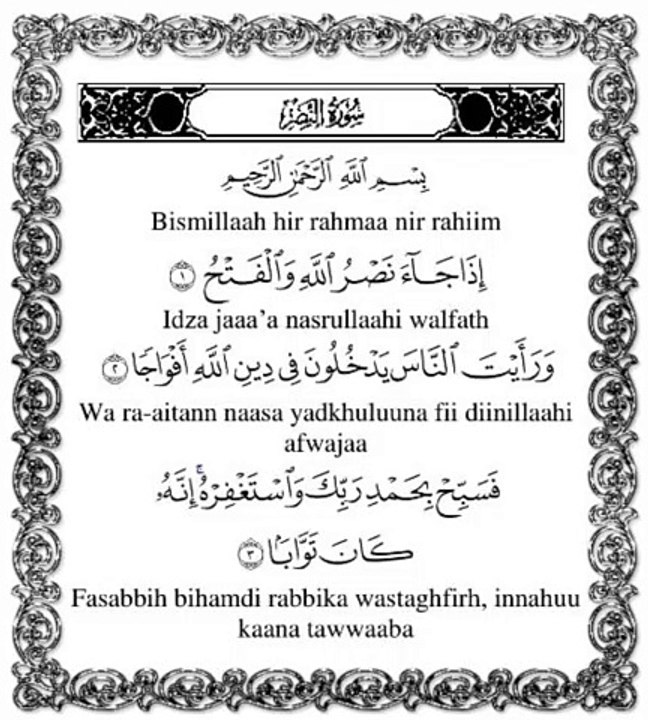 سُورَةُ النَّصْرِ
بِسْمِ ٱللَّهِ ٱلرَّحْمَٰنِ ٱلرَّحِيمِ
Bismillaah hir rahmaa nir rahiim
إِذَا جَآءَ نَصْرُ ٱللَّهِ وَٱلْفَتْحُ ١
Idza jaaa’a nasrullaahi walfath
وَرَأَيْتَ ٱلنَّاسَ يَدْخُلُونَ فِى دِينِ ٱللَّهِ أَفْوَاجًا ٢
Wa ra-aitann naasa yadkhuluuna fii diinillaahi
afwajaa
فَسَبِّحْ بِحَمْدِ رَبِّكَ وَٱسْتَغْفِرْهُ ۚ إِنَّهُۥ
كَانَ تَوَّابًۢا ٣
Fasabbih bihamdi rabbika wastaghfirh, innahuu
kaana tawwaaba